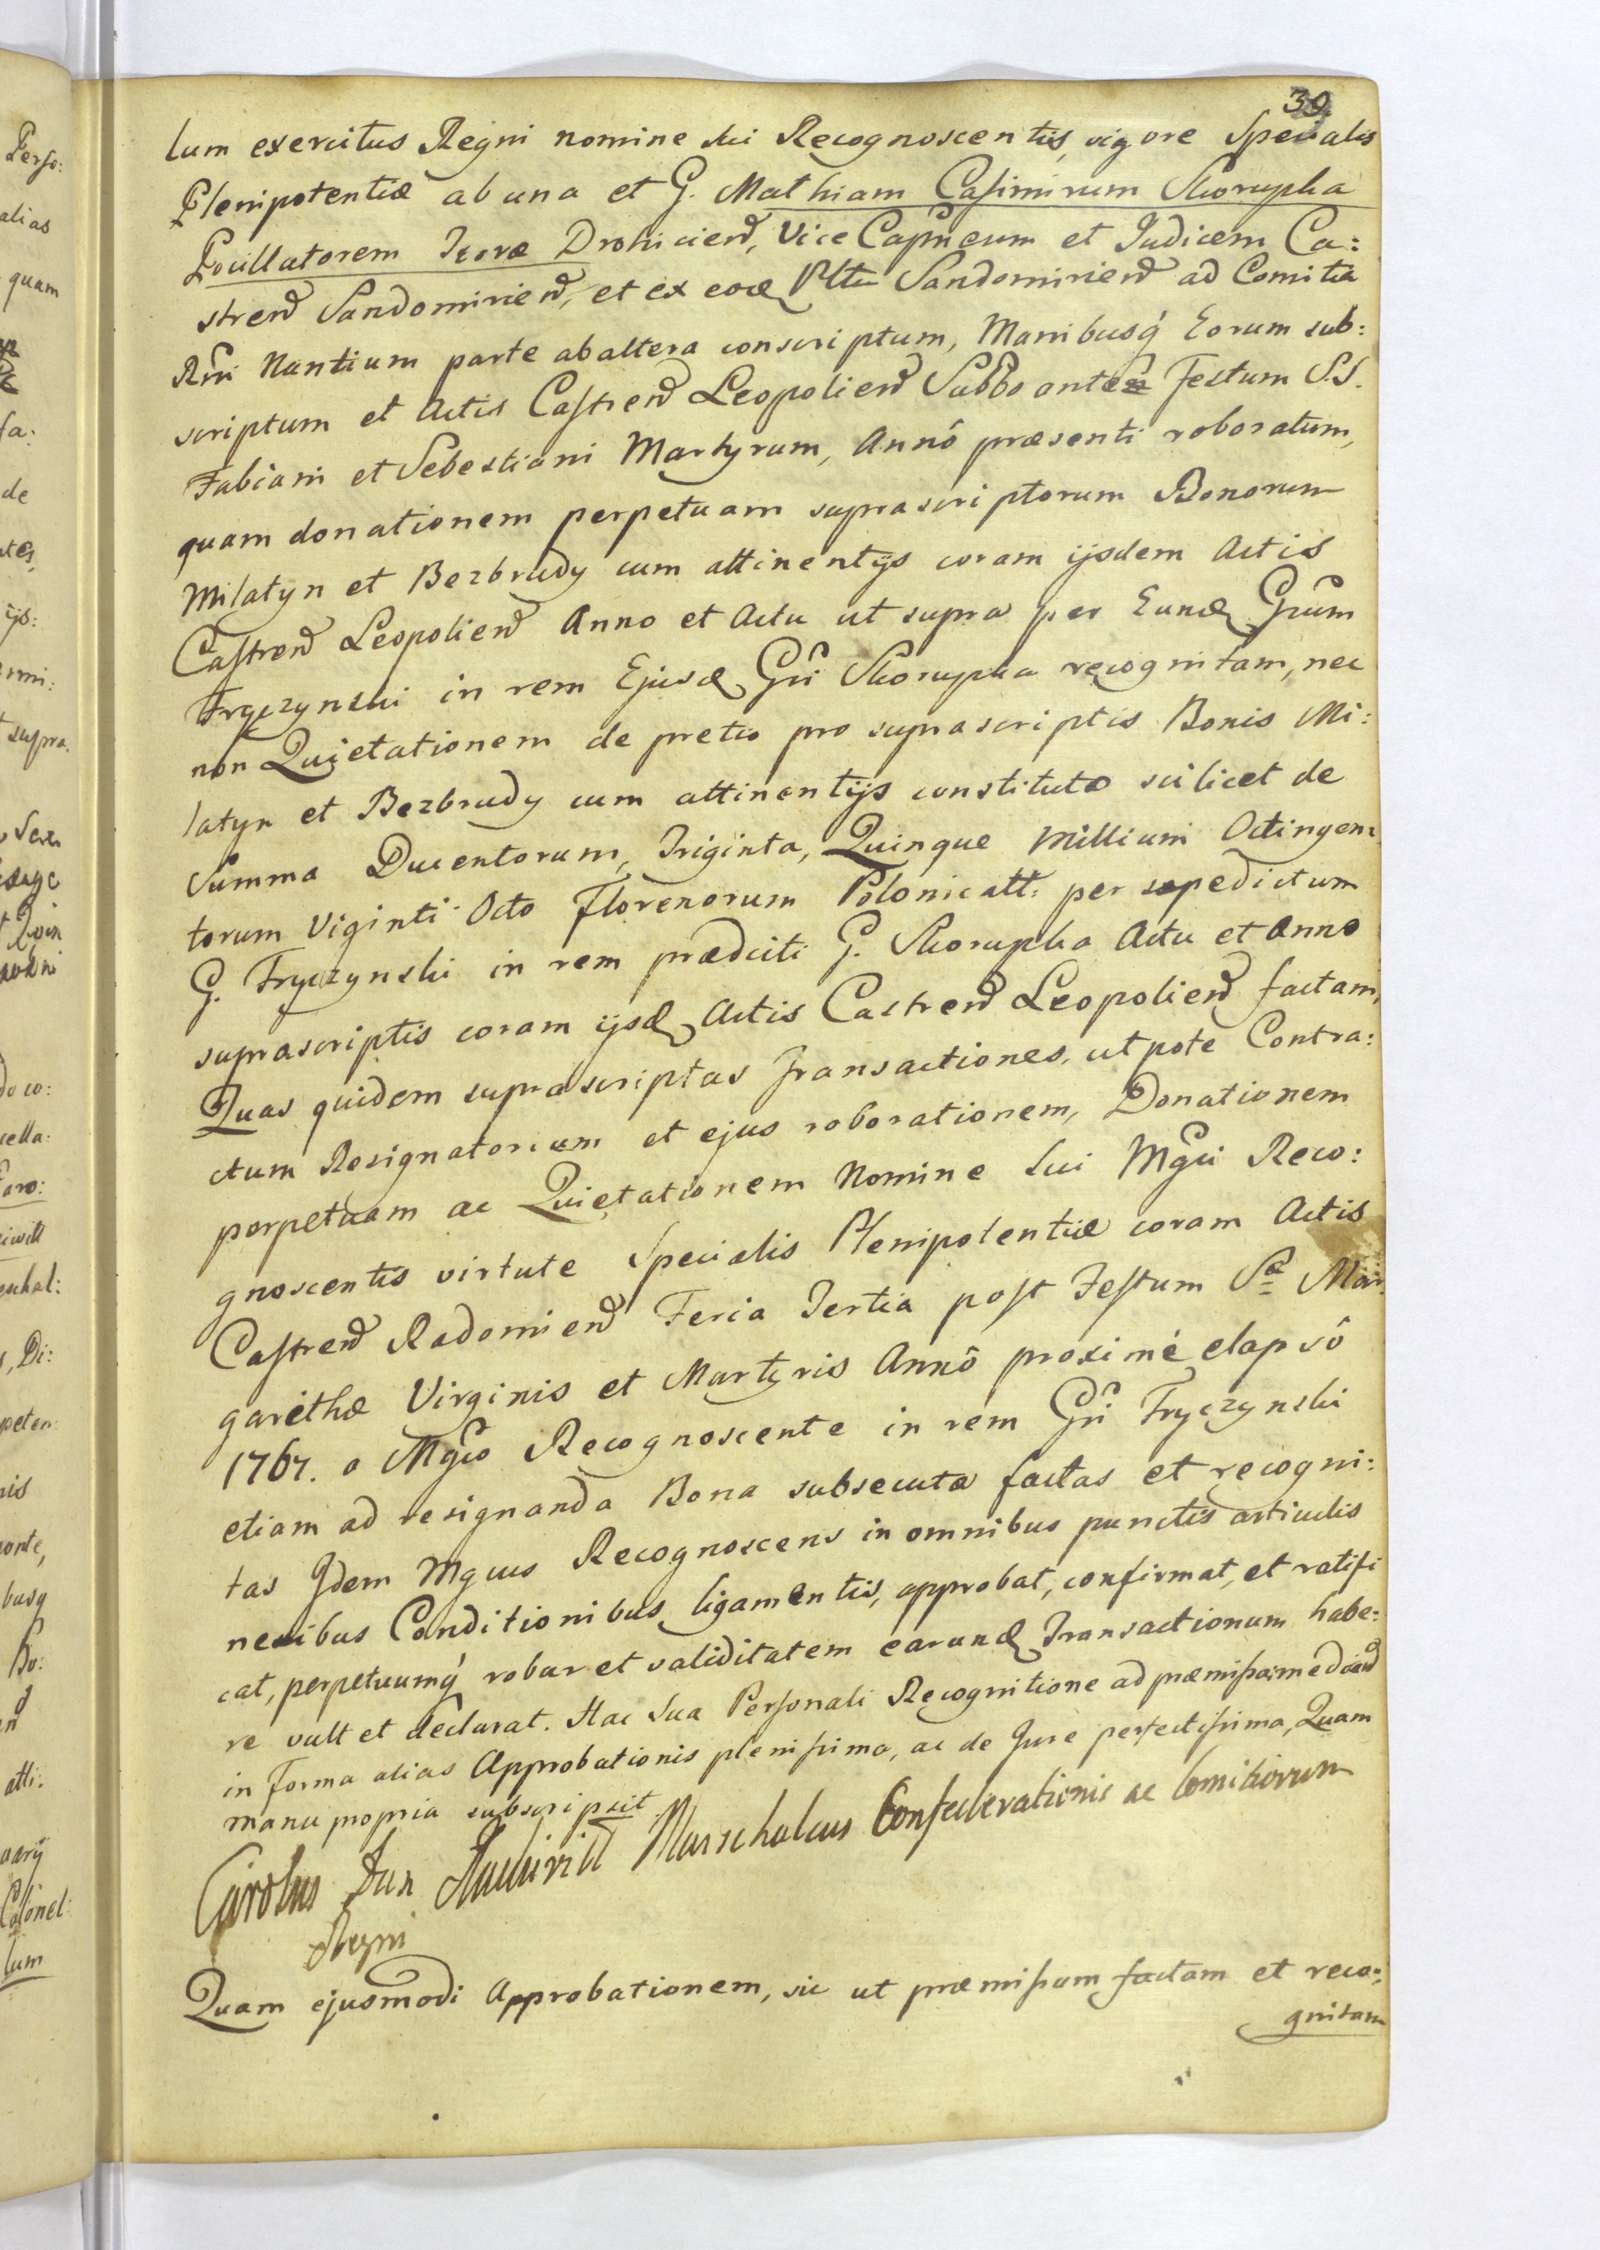 39
lum exercitus Regni nomine sui Recognoscentis, vigore Specialis
Plenipotentiæ ab una et G. Mathiam Casimirum Skorupka
Pocillatorem Terræ Drohicien, Vice Capneum et Judicem Ca:
stren Sandomirien, et ex eod Pltu Sandomirien ad Comitia
Rni Nuntium parte ab altera conscriptum, Manibusq Eorum sub:
scriptum et Actis Castren Leopolien Sabbo ante Festum S.S.
Fabiani et Sebestiani Martyrum, Annô præsenti roboratum,
quam donationem perpetuam suprascriptorum Bonorum
Milatyn et Bezbrudy cum attinentijs coram ijsdem Actis
Castren Leopolien Anno et Actu ut supra per Eund Gnum
Fryczynski in rem Ejusd Gni Skorupka recognitam, nec
non Quietationem de pretio pro suprascriptis Bonis Mi:
latyn et Bezbrudy cum attinentijs constituto scilicet de
Summa Ducentorum, Triginta, Quinque Millium Octingen:
torum Viginti Octo Florenorum Polonicall: per sæpedictum
G. Fryczynski in rem prædicti G. Skorupka Actu et Anno
suprascriptis coram ijsd Actis Castren Leopolien factam,
Quas quidem suprascriptas Transactiones, utpote Contra:
ctum Resignatorium et ejus roborationem, Donationem
perpetuam ac Quietationem Nomine Sui Mgci Reco:
gnoscentis virtute Specialis Plenipotentiæ coram Actis
Castren Radomien Feria Tertia post Festum Sæ Mar:
garethæ Virginis et Martyris Annô proximé elapsô
1767. a Mgco Recognoscente in rem Gni Fryczynski
etiam ad resignanda Bona subsecuta factas et recogni:
tas Idem Mgcus Recognoscens in omnibus punctis articulis
nexibus Conditionibus ligamentis, approbat, confirmat, et ratifi
cat, perpetuumq robur et validitatem earund Transactionum habe:
re vult et declarat. Hac Sua Personali Recognitione ad præmissa mediand
in forma alias Approbationis plenissima, ac de Jure perfectissima, Quam
manu propria subscripsit
Carolus Dux Radziwill Marschalcus Confederationis ac Comitiorum
Regni
Quam ejusmodi Approbationem, sic ut præmissum factam et reco:
gnitam